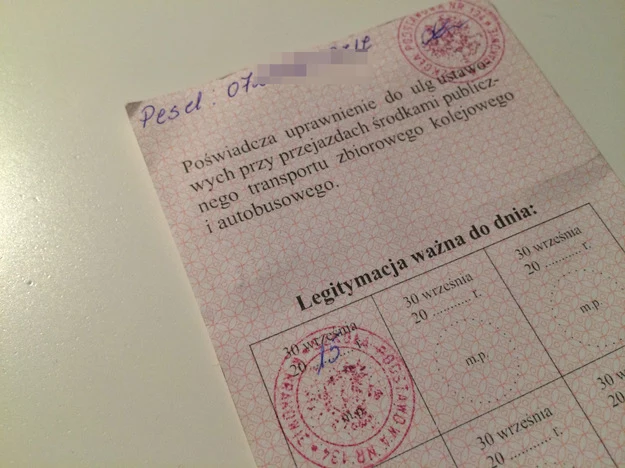 Pesel: 07
Poświadcza uprawnienie do ulg ustawo-
wych przy przejazdach środkami publicz-
nego transportu zbiorowego kolejowego
i autobusowego.
Legitymacja ważna do dnia:
30 września
20 15 r.
m.p.
SZKOŁA PODSTAWOWA NR 134
30 września
20 ........... r.
m.p.
30 września
20 ........... r.
m.p.
30 września
20 ........... r.
30 w
20